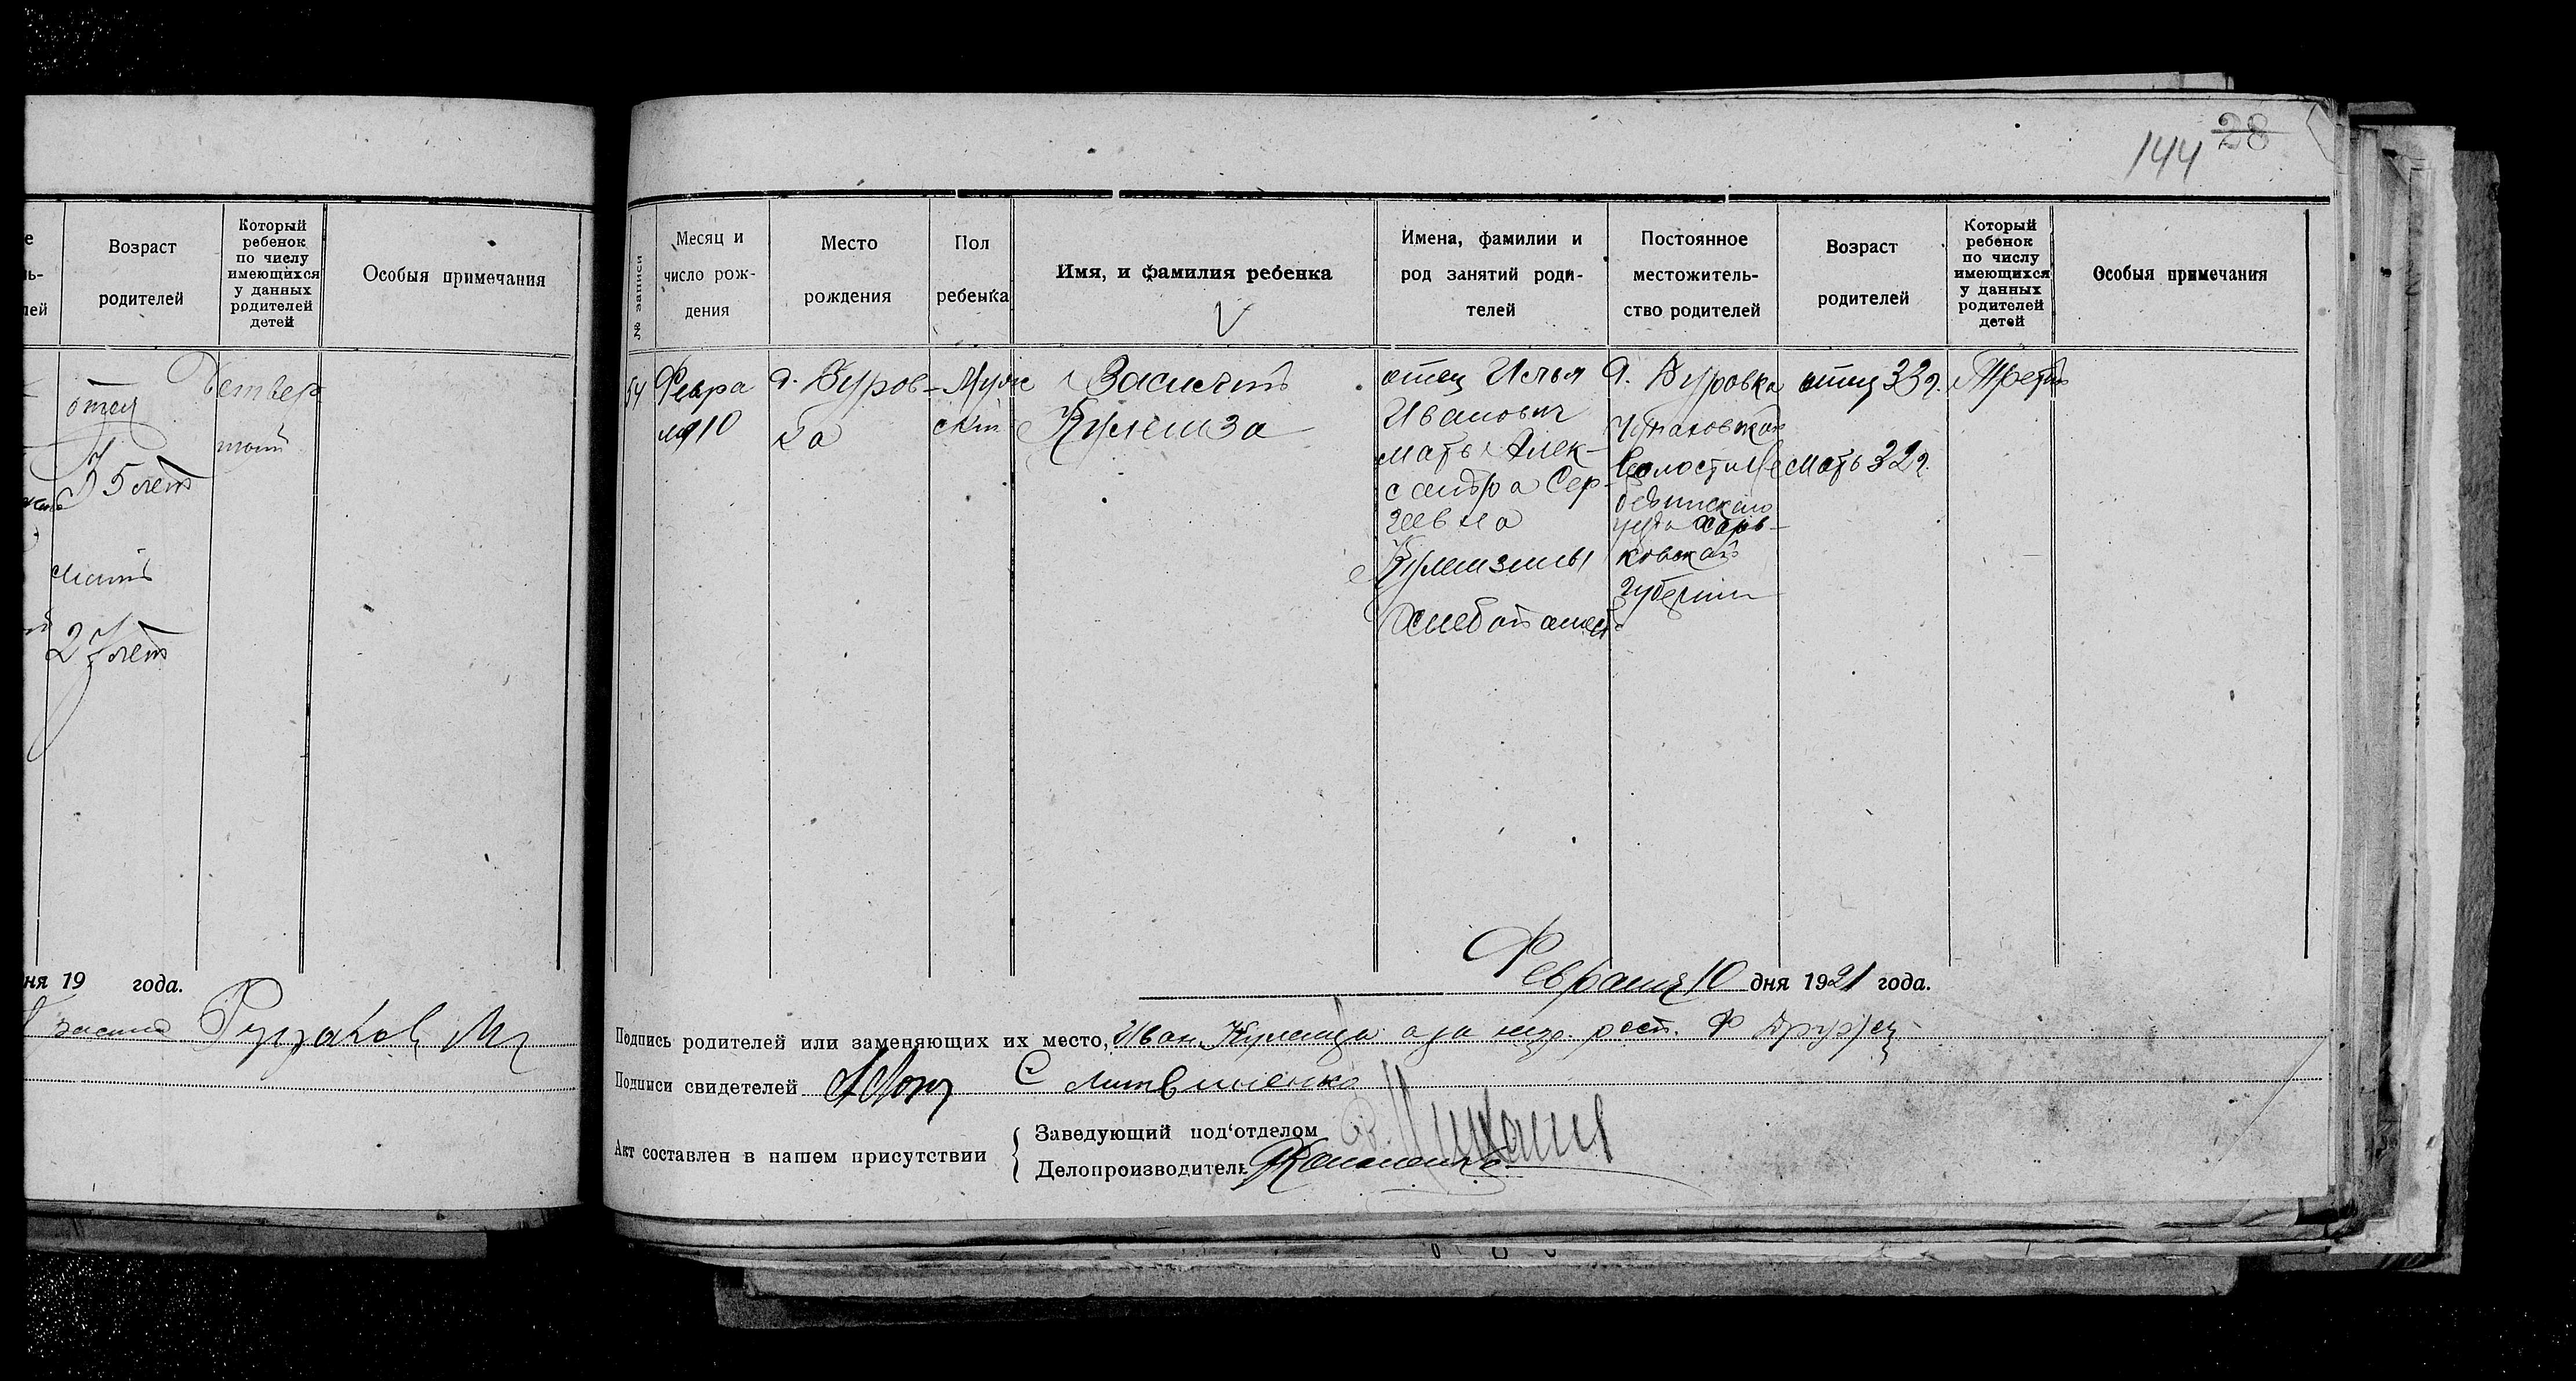 144 28
Возраст
родителей
Который
ребенок
по числу
имеющихся
у данных
родителей
детей
Особыя примечания
отец
35 лет
мать
27 лет
Четвер
тый
ня 19 года.
№ записи
Месяц и
число рож-
дения
Место
рождения
Пол
ребенка
Имя, и фамилия ребенка
V
Имена, фамилии и
род занятий роди-
телей
Постоянное
местожитель-
ство родителей
Возраст
родителей
Который
ребенок
по числу
имеющихся
у данных
родителей
детей
Особыя примечания
54
Февра
ля 10
д. Буров-
ка
Муж
ский
Василий
Кулешза
отец Илья
Иванович
мать Алек-
сандра Сер-
геевна
Хлебопашест
д. Буровка
Волости Ле
бединского
уезда Харь-
ковской
губернии
отец 33 г.
мать 32 г.
Третий
Февраля 10 дня 1921 года.
Подпись родителей или заменяющих их место, Иван а за него рост. Ф
Подписи свидетелей С Литвиненко
Акт составлен в нашем присутствии
Заведующий под'отделом
Делопроизводитель